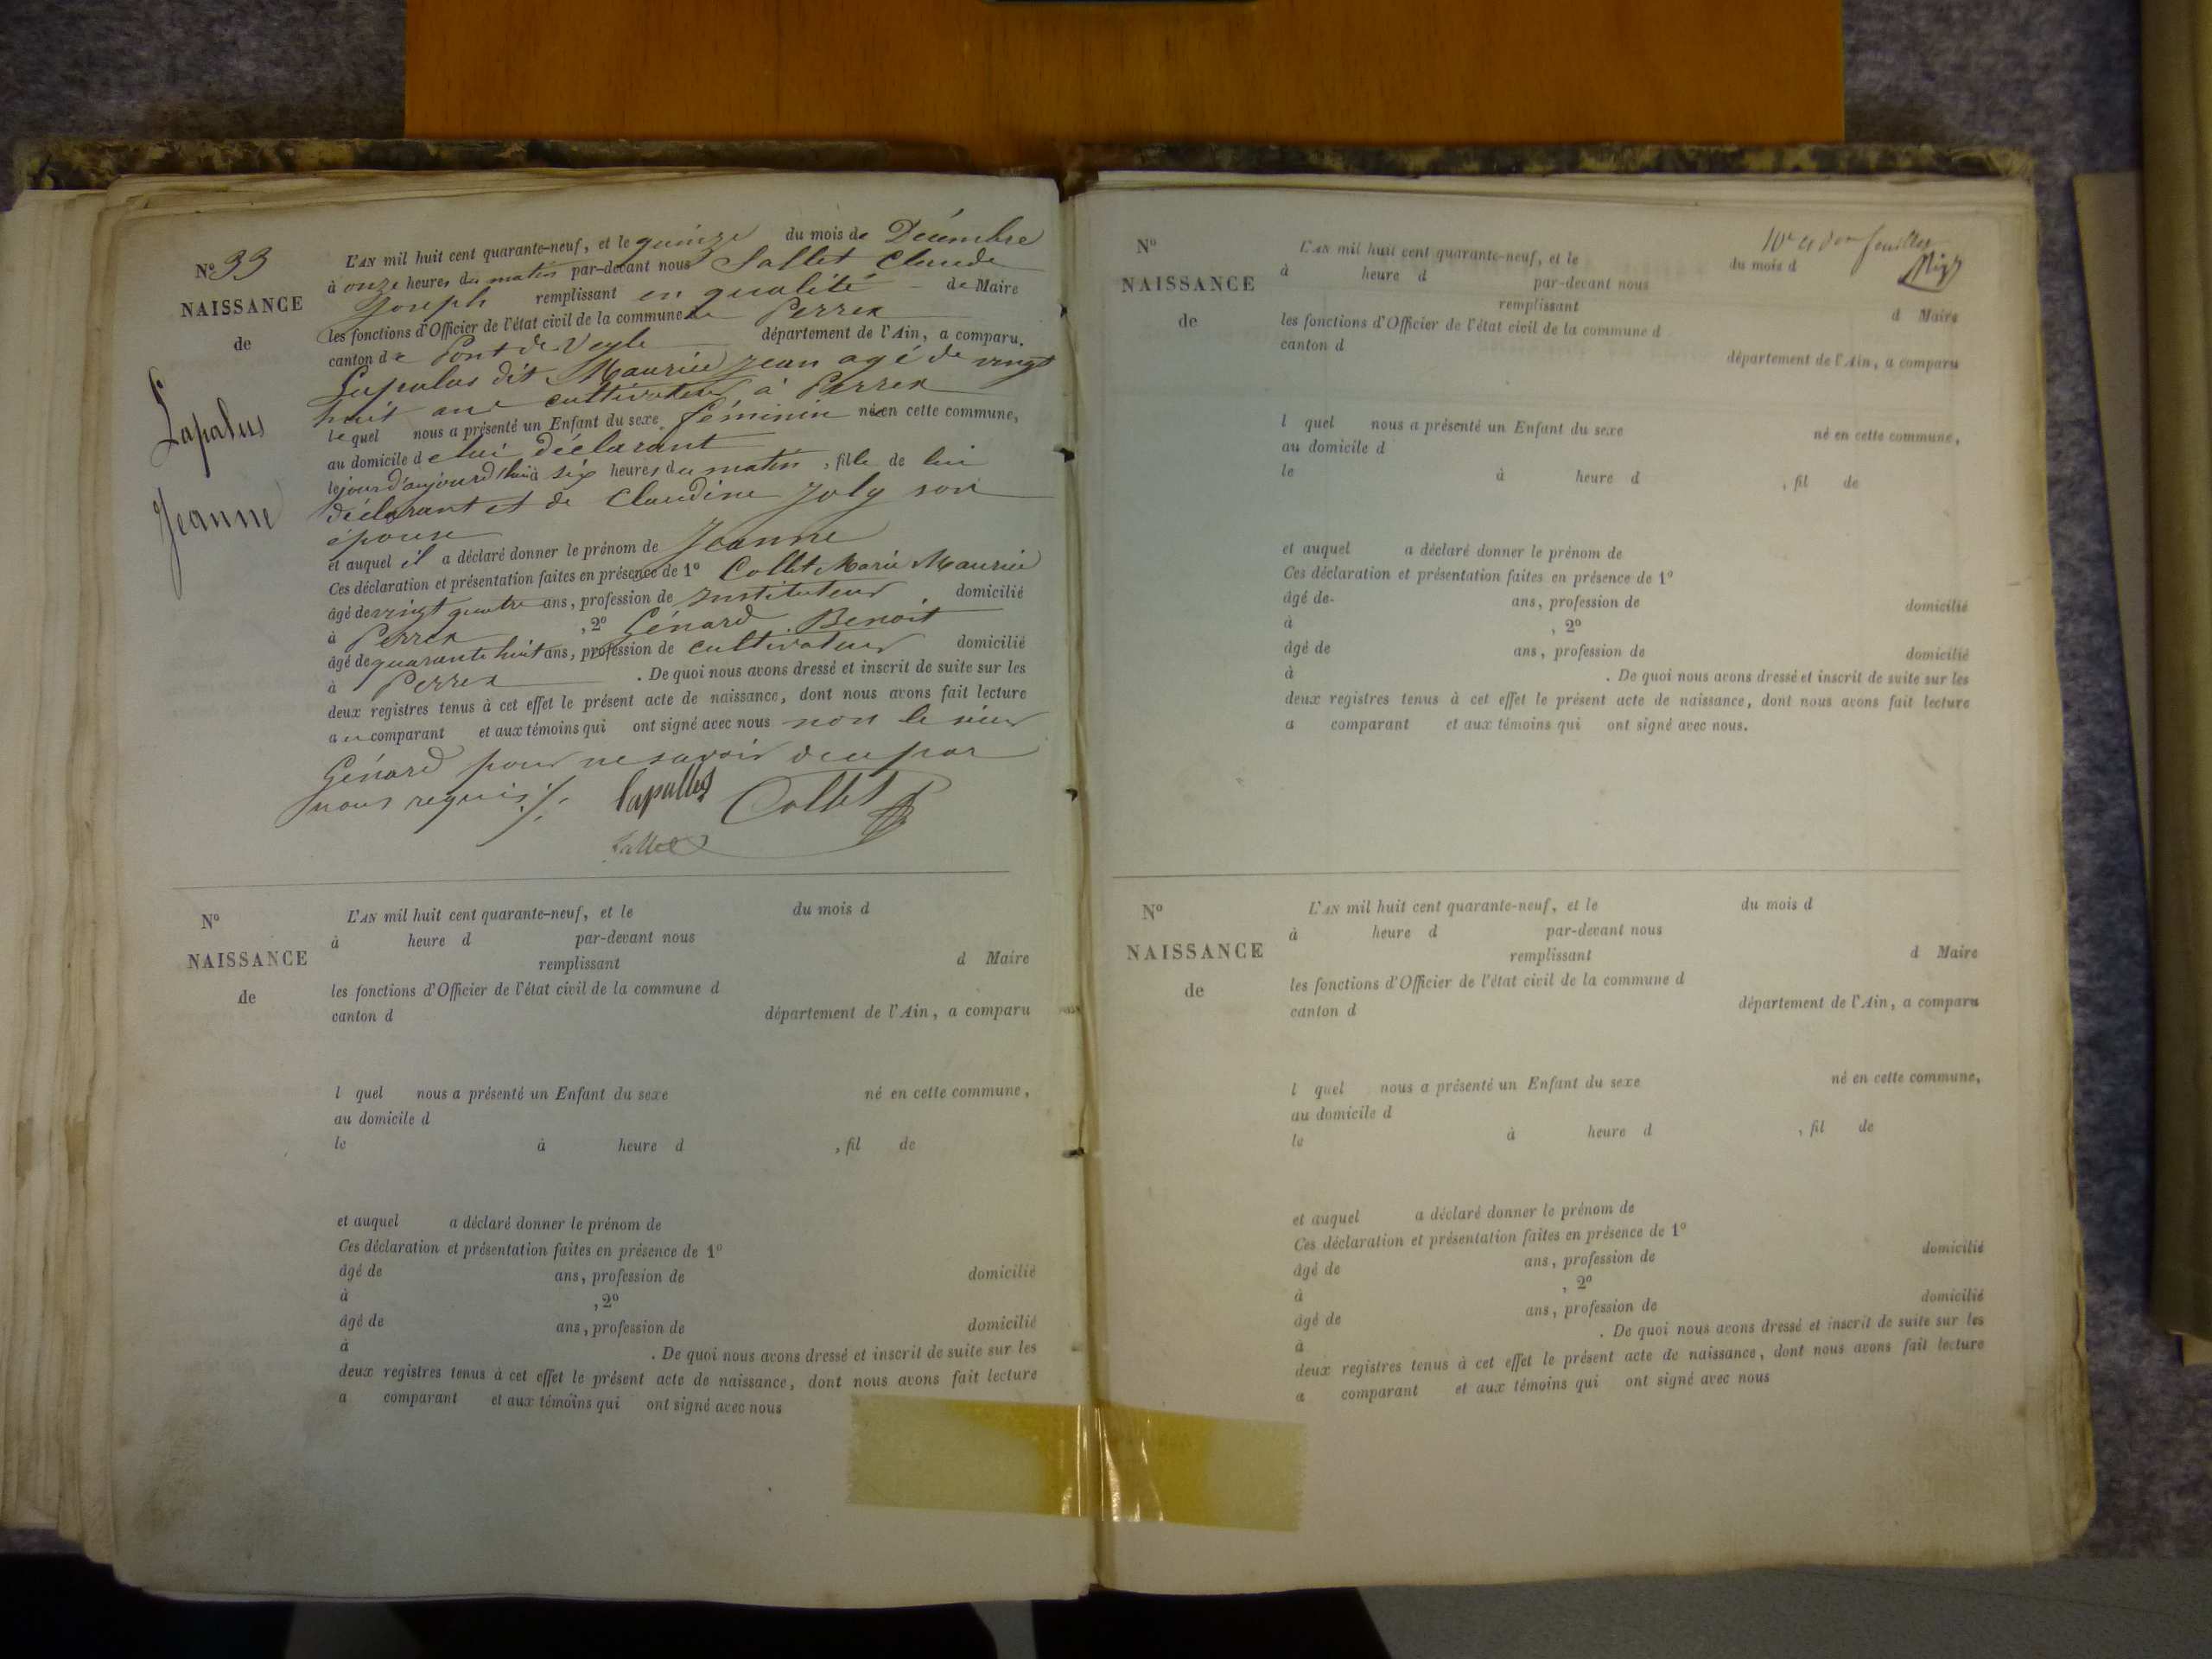 Nº 33
NAISSANCE
de
Lapalus
Jeanne
L'AN mil huit cent quarante-neuf, et le quinze du mois de Décembre
à onze heures du matin par-devant nous Sallet Claude
Joseph remplissant en qualité de Maire
les fonctions d'Officier de l'état civil de la commune de Perrex
canton de Pont de Veyle département de l'Ain, a comparu.
Lapalus dit Maurice Jean agé de vingt
huit ans cultivateur à Perrex
lequel nous a présenté un Enfant du sexe féminin né en cette commune,
au domicile de lui déclarant
le jour d'aujourd'hui à six heures du matin, fille de lui
déclarant et de Claudine Joly son
épouse
et auquel il a déclaré donner le prénom de Jeanne
Ces déclaration et présentation faites en présence de 1º Collet Marie Maurice
âgé de vingt quatre ans, profession de Instituteur domicilié
à Perrex, 2º Génard Benoit
âgé de quarante huit ans, profession de cultivateur domicilié
à Perrex. De quoi nous avons dressé et inscrit de suite sur les
deux registres tenus à cet effet le présent acte de naissance, dont nous avons fait lecture
au comparant et aux témoins qui ont signé avec nous non le sieur
Génard pour ne savoir de ce par
nous requis ./.
Lapallus Collet
Sallet
Nº
NAISSANCE
de
L'AN mil huit cent quarante-neuf, et le du mois d
à heure d par-devant nous
remplissant d Maire
les fonctions d'Officier de l'état civil de la commune d
canton d département de l'Ain, a comparu
l quel nous a présenté un Enfant du sexe né en cette commune,
au domicile d
le à heure d , fil de
et auquel a déclaré donner le prénom de
Ces déclaration et présentation faites en présence de 1º
âgé de ans, profession de domicilié
à , 2º
âgé de ans, profession de domicilié
à . De quoi nous avons dressé et inscrit de suite sur les
deux registres tenus à cet effet le présent acte de naissance, dont nous avons fait lecture
a comparant et aux témoins qui ont signé avec nous
feuillet
Nº
NAISSANCE
de
L'AN mil huit cent quarante-neuf, et le du mois d
à heure d par-devant nous
remplissant d Maire
les fonctions d'Officier de l'état civil de la commune d
canton d département de l'Ain, a comparu
l quel nous a présenté un Enfant du sexe né en cette commune,
au domicile d
le à heure d , fil de
et auquel a déclaré donner le prénom de
Ces déclaration et présentation faites en présence de 1º
âgé de ans, profession de domicilié
à , 2º
âgé de ans, profession de domicilié
à . De quoi nous avons dressé et inscrit de suite sur les
deux registres tenus à cet effet le présent acte de naissance, dont nous avons fait lecture
a comparant et aux témoins qui ont signé avec nous.
Nº
NAISSANCE
de
L'AN mil huit cent quarante-neuf, et le du mois d
à heure d par-devant nous
remplissant d Maire
les fonctions d'Officier de l'état civil de la commune d
canton d département de l'Ain, a comparu
l quel nous a présenté un Enfant du sexe né en cette commune,
au domicile d
le à heure d , fil de
et auquel a déclaré donner le prénom de
Ces déclaration et présentation faites en présence de 1º
âgé de ans, profession de domicilié
à , 2º
âgé de ans, profession de domicilié
à . De quoi nous avons dressé et inscrit de suite sur les
deux registres tenus à cet effet le présent acte de naissance, dont nous avons fait lecture
a comparant et aux témoins qui ont signé avec nous